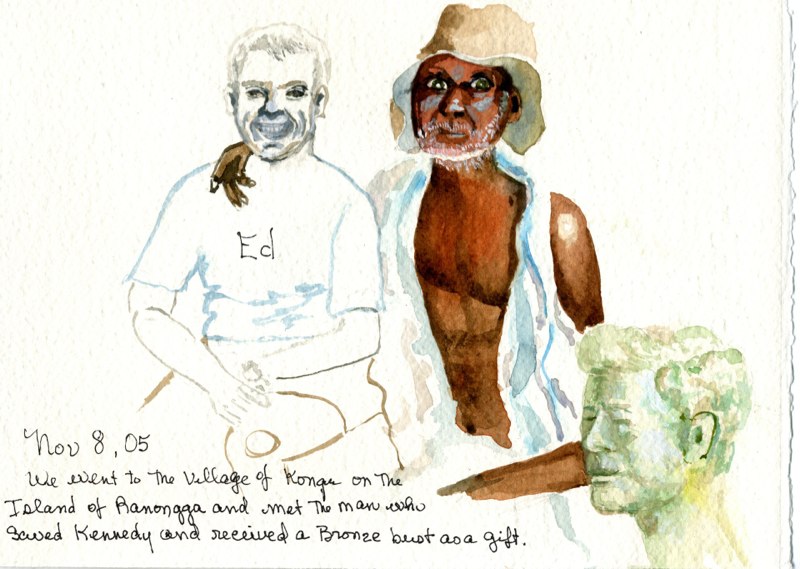 Ed
Nov 8, 05
We went to the Village of Kongu on the
Island of Ranongga and met the man who
Saved Kennedy and received a Bronze bust as a gift.